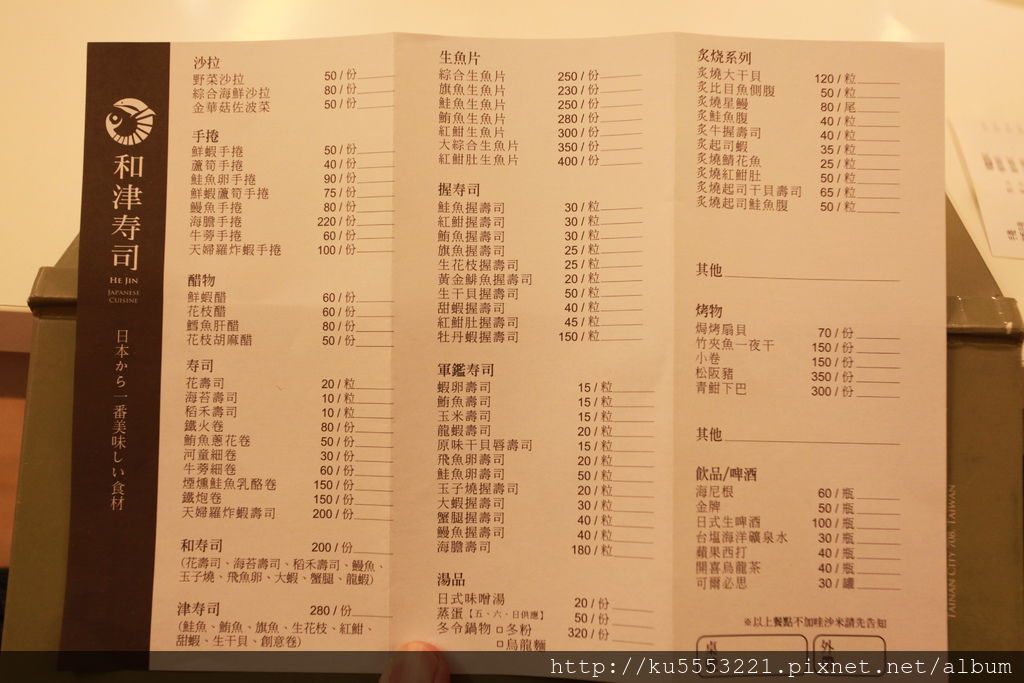 和津寿司
HE JIN
JAPANESE
CUISINE
日本から一番美味しい食材
沙拉
野菜沙拉 50/份
綜合海鮮沙拉 80/份
金華菇佐波菜 50/份
手捲
鮮蝦手捲 50/份
蘆筍手捲 40/份
鮭魚卵手捲 90/份
鮮蝦蘆筍手捲 75/份
鰻魚手捲 80/份
海膽手捲 220/份
牛蒡手捲 60/份
天婦羅炸蝦手捲 100/份
醋物
鮮蝦醋 60/份
花枝醋 60/份
鱈魚肝醋 80/份
花枝胡麻醋 50/份
寿司
花壽司 20/粒
海苔壽司 10/粒
稻禾壽司 10/粒
鐵火卷 80/份
鮪魚蔥花卷 50/份
河童細卷 30/份
牛蒡細卷 60/份
煙燻鮭魚乳酪卷 150/份
鐵炮卷 150/份
天婦羅炸蝦壽司 200/份
和寿司 200/份
(花壽司、海苔壽司、稻禾壽司、鰻魚、
玉子燒、飛魚卵、大蝦、蟹腿、龍蝦)
津寿司 280/份
(鮭魚、鮪魚、旗魚、生花枝、紅魽、
甜蝦、生干貝、創意卷)
生魚片
綜合生魚片 250/份
旗魚生魚片 230/份
鮭魚生魚片 250/份
鮪魚生魚片 280/份
紅魽生魚片 300/份
大綜合生魚片 350/份
紅魽肚生魚片 400/份
握寿司
鮭魚握壽司 30/粒
紅魽握壽司 30/粒
鮪魚握壽司 30/粒
旗魚握壽司 25/粒
生花枝握壽司 25/粒
黃金鯡魚握壽司 20/粒
生干貝握壽司 50/粒
甜蝦握壽司 40/粒
紅魽肚握壽司 45/粒
牡丹蝦握壽司 150/粒
軍鑑寿司
蝦卵壽司 15/粒
鮪魚壽司 15/粒
玉米壽司 15/粒
龍蝦壽司 20/粒
原味干貝唇壽司 15/粒
飛魚卵壽司 20/粒
鮭魚卵壽司 50/粒
玉子燒握壽司 20/粒
大蝦握壽司 30/粒
蟹腿握壽司 40/粒
鰻魚握壽司 40/粒
海膽壽司 180/粒
湯品
日式味噌湯 20/份
蒸蛋【五、六、日供應】 50/份
冬令鍋物 □冬粉 320/份
□烏龍麵
炙烧系列
炙燒大干貝 120/粒
炙比目魚側腹 50/粒
炙燒星鰻 80/尾
炙鮭魚腹 40/粒
炙牛握壽司 40/粒
炙起司蝦 35/粒
炙燒鯖花魚 25/粒
炙燒紅魽肚 50/粒
炙燒起司干貝壽司 65/粒
炙燒起司鮭魚腹 50/粒
其他
烤物
焗烤扇貝 70/份
竹夾魚一夜干 150/份
小卷 150/份
松阪豬 350/份
青魽下巴 300/份
其他
飲品/啤酒
海尼根 60/瓶
金牌 50/瓶
日式生啤酒 100/瓶
台塩海洋礦泉水 30/瓶
蘋果西打 40/瓶
開喜烏龍茶 40/瓶
可爾必思 30/罐
※以上餐點不加哇沙米請先告知
桌
外
TAINAN CITY 708, TAIWAN
http://ku5553221.pixnet.net/album